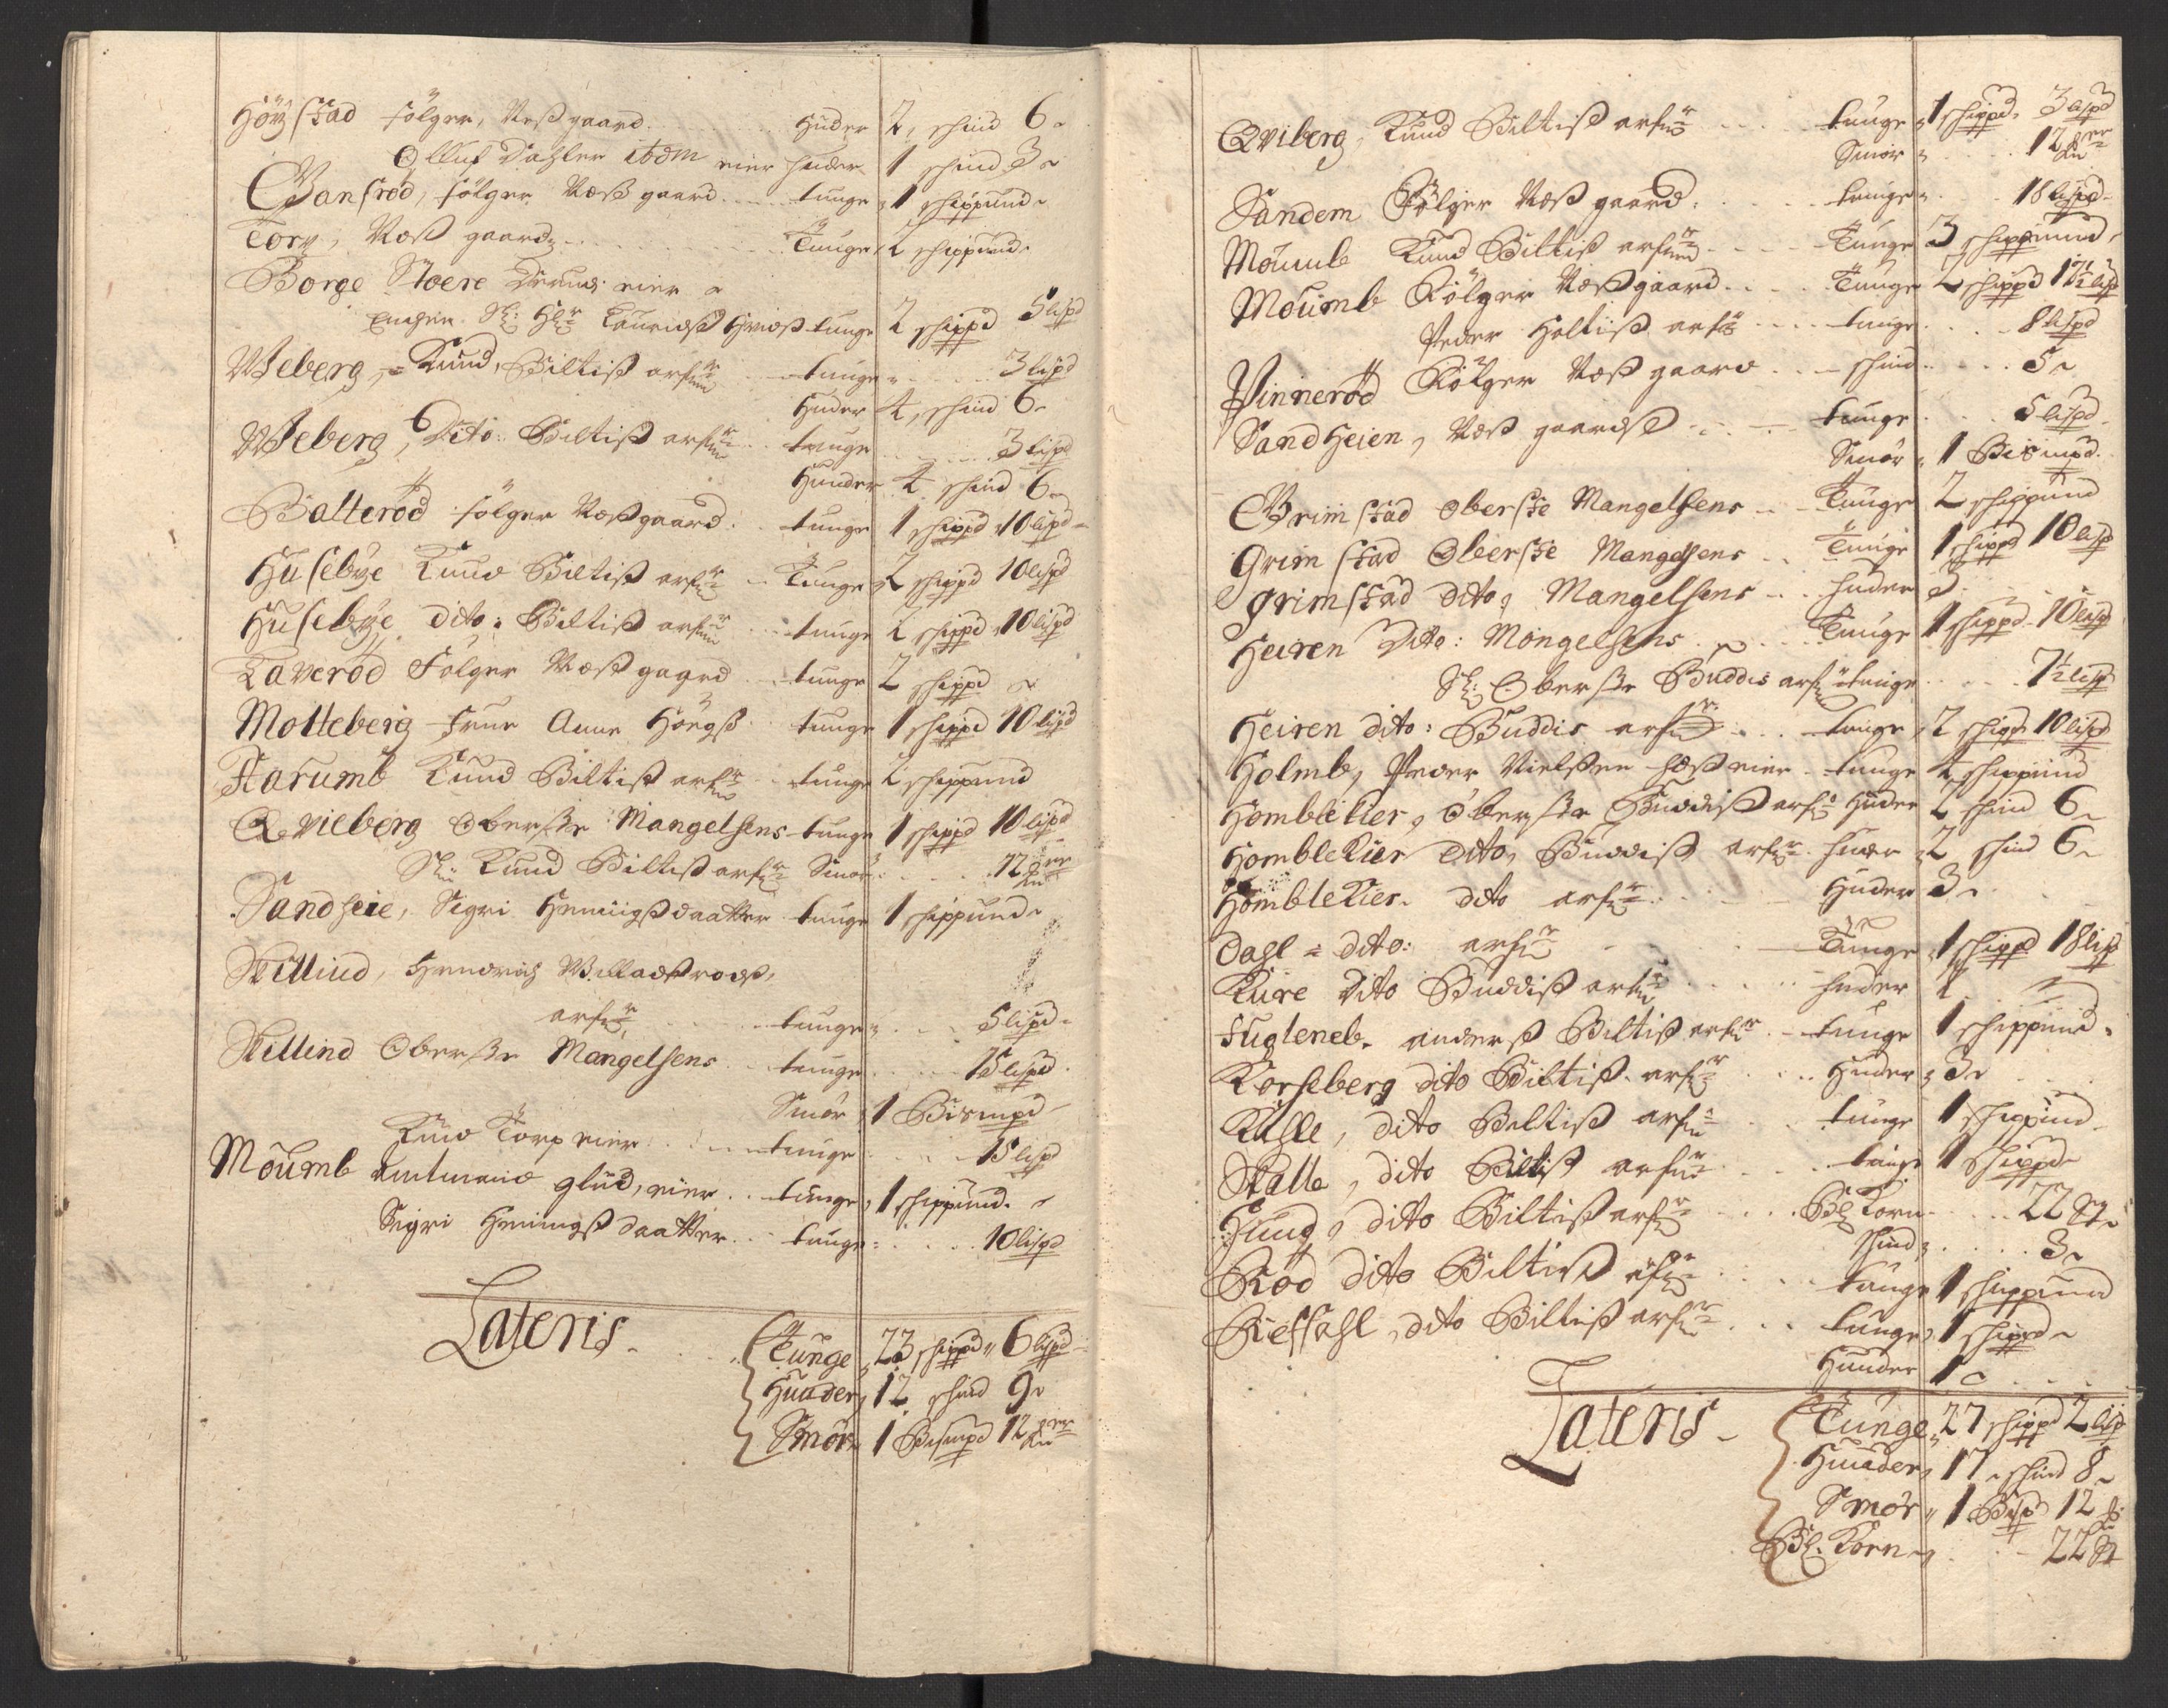 Høystad følger, Næss gaard. Huder 2, schind 6
Olluf Dahler ibdm eier huder 1 schind 3
Gansrød, følger Næss gaard tunge 1 schippund
Torp, Næss gaard tunge 2 schippund
Borge Støere eier
Enchen Sl: Hr Lauridss tunge 2 schippd 5 lispd
Weberg, Knud, Biltiss arfr tunge 3 lispd
Huder 4, schind 6
Weberg, Dito: Biltiss arfr tunge 3 lispd
Hunder 4 schind 6
Balterød følger Næssgaard tunge 1 schippd 10 lispd
Husebye Knud Biltiss arfr Tunge 2 schippd 10 lispd
Husebye dito: Biltiss arfr tunge 2 schippd 10 lispd
Taverød Følger Næss gaard tunge 2 schippd
Molteberg Frue Anne Høegss tunge 1 schippd 10 lispd
Harumb Knud Biltiss arfr tunge 2 schippund
Qvieberg Oberste Mangelsens tunge 1 schippd 10 lispd
Sl: Knud Biltiss arfr Smør 12
Sandheie, Sigri Hennigss daatter tunge 1 schippund
Killind, Hendrich Willadss
arfr tunge 5 lispd
Killind Oberste Mangelsens tunge 15 lispd
Smør 1 Bismpd
Knud Torp eier tunge 15 lispd
Moumb Amtmand glud, eier tunge 1 schippund
Sigri Hennigss daatter tunge 10 lispd
Lateris
Tunge 23 schippd 6 lispd
Huuder 12 schind 9
Smør 1 Bismpd 12
Qviberg, Knud Biltiss arfr tunge 1 schippd 3 lispd
Smør 12
Sandem Følger Næss gaard tunge 18 lispd
Moumb Knud Biltiss arfr Tunge 3 schippund
Moumb Følger Næssgaard Tunge 2 schippd 17½ lispd
Peder Holtiss arfr tunge 8 lispd
Pinnerød Følger Næss gaard schind 5
Sandheien, Næss gaardss tunge 5 lispd
Smør 1 Bismpd
Grimstad Oberste Mangelsens Tunge 2 schippund
Grimstad Oberste Mangelsens Tunge 1 schippd 10 lispd
Grimstad dito, Mangelsens huder 3
Heiren Dito: Mangelsens Tunge 1 schippd 10 lispd
Sl: Oberste Buddis arfr tunge 7½ lispd
Heiren dito: Buddis arfr tunge 2 schippd 10 lispd
Holmb, Peder Nielssen tunge 4 schippund
Hombleker, Oberste Buddiss arfr Huder 2 schind 6
Hombleker dito, Buddiss arfr huder 2 schind 6
Hombleker dito arfr Huder 3
Dahl dito: arfr Tunge 1 schippd 18 lispd
Kure Dito Buddiss arfr huder 2
Fugleneb anderss Biltiss arfr tunge 1 schippund
Korseberg dito Biltiss arfr Huder 3
Kihlle, dito Biltiss arfr tunge 1 schippund
Kalle, dito Biltiss arfr tunge 1 schippd
Hund, dito Biltiss arfr Bl Korn 22
schind 3
Rød Dito Biltiss arfr tunge 1 schippund
Refsahl, dito Biltiss arfr tunge 1 schippd
Huuder 1
Lateris
Tunge 27 schippd 2 lispd
Huuder 17 schind 8
Smør 1 Bispd 12
Bl: Korn 22